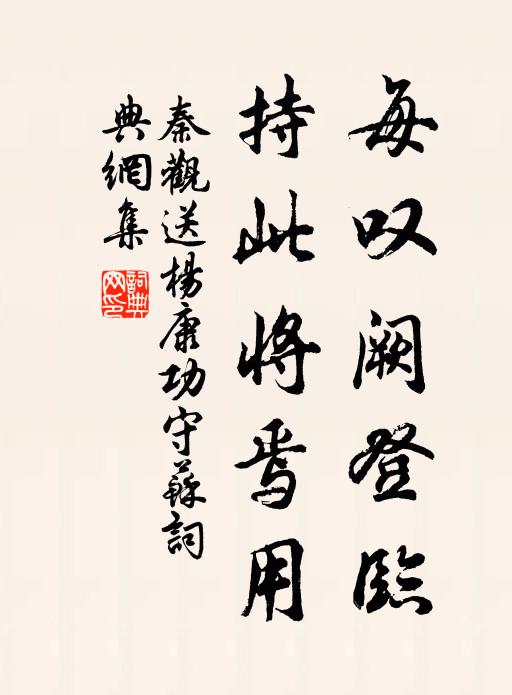 每叹阙登臨
持此将焉用
秦觀送楊康功守蘇詞
典網集
詞典網印